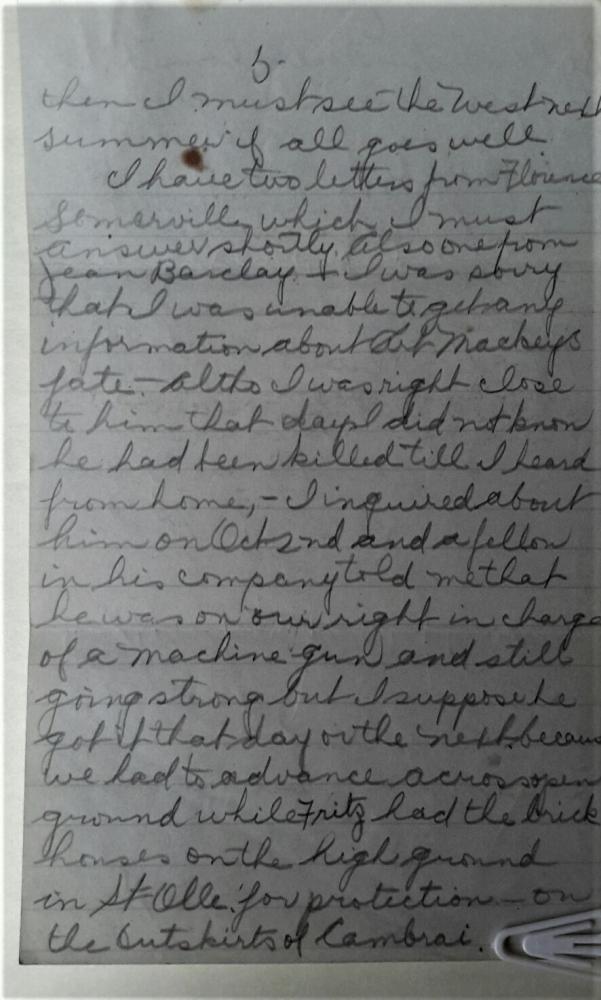 5-
then I must see the West next
summer if all goes well.
I have two letters from Florence
Somerville which I must
answer shortly, also one from
Jean Barclay - I was sorry
that I was unable to get any
information about Art Mackeys
fate - altho I was right close
to him that day I did not know
he had been killed till I heard
from home, - I inquired about
him on Oct 2nd and a fellow
in his company told me that
he was on our right in charge
of a machine gun and still
going strong but I suppose he
got it that day or the next because
we had to advance across open
ground while Fritz had the brick
houses on the high ground
in St Olle for protection - on
the outskirts of Cambrai.